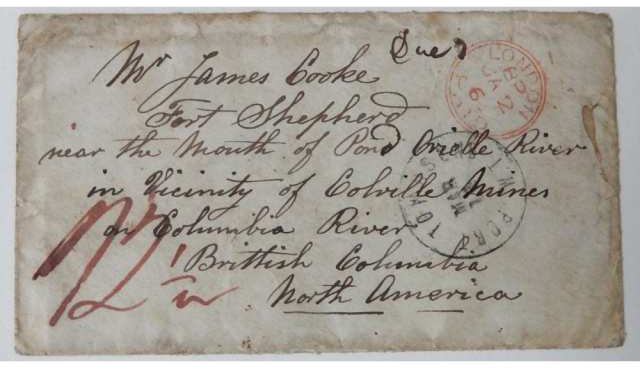 Due 7
Mr James Cooke
Fort Shepherd
near the Mouth of Pond Orielle River
in Vicinity of Colville Mines
on Columbia River
Brittish Columbia
North America
12 1/2
LONDON
JA 2
MAR